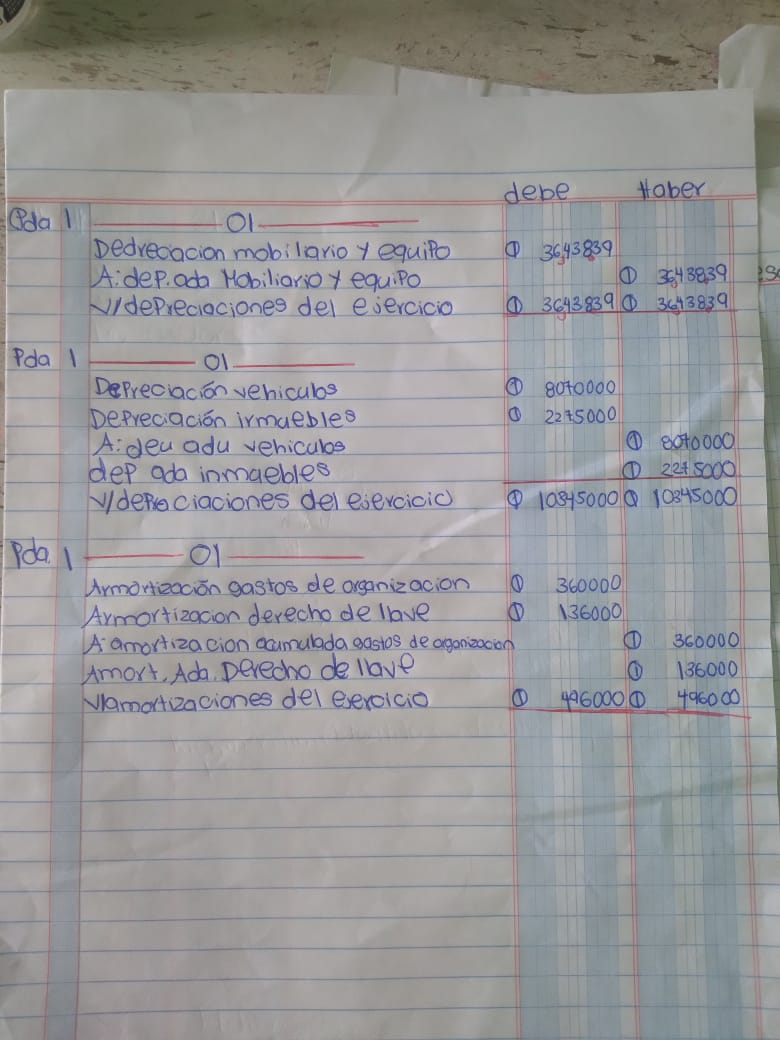 debe Haber
Pda 1 01
Depreciacion mobiliario y equipo Q 36,438.39
A: dep. ada Mobiliario y equipo Q 36,438.39
V/depreciaciones del ejercicio Q 36,438.39 Q 36,438.39
Pda 1 01
Depreciación vehiculos Q 8070000
Depreciación irmuebles Q 2275000
A: deu adu vehiculos Q 8070000
dep ada inmaebles Q 2275000
V/depreciaciones del ejercicio Q 10345000 Q 10345000
Pda. 1 01
Armortización gastos de organizacion Q 360000
Armortizacion derecho de llave Q 136000
A: amortizacion acumulada gastos de organizacion Q 360000
Amort. Ada. Derecho de llave Q 136000
V/amortizaciones del ejercicio Q 496000 Q 496000